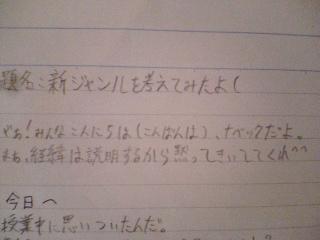 題名:新ジャンルを考えてみたよ(
やぁ!みんなこんにちは(こんばんは)、ナベックだよ。
まぁ、経緯は説明するから黙ってきいててくれ^^
今日へ
授業中に思いついたんだ。